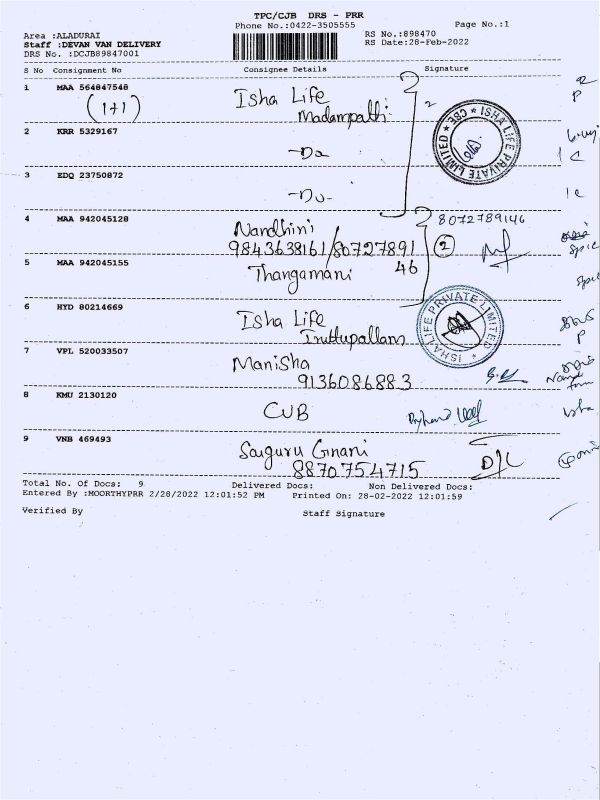 TPC/CJB DRS - PRR
Phone No.:0422-3505555
Page No.:1
Area :ALADURAI
RS No.:898470
Staff :DEVAN VAN DELIVERY
RS Date:28-Feb-2022
DRS No. :DCJB89847001
S No Consignment No Consignee Details Signature
1 MAA 564847548 Isha Life
(1+1) Madampatti 2
CBE * ISHA LIFE PRIVATE LIMITED *
2 KRR 5329167
-Do
3 EDQ 23750872
-Do-
4 MAA 942045128 Nandhini 8072789146
9843638161/80727891 2
5 MAA 942045155 Thangamani 46
6 HYD 80214669 Isha Life
Iruttupallam
* ISHA LIFE PRIVATE LIMITED
7 VPL 520033507 Manisha
9136086883
8 KMU 2130120 CUB
9 VNB 469493 Saiguru Gnani
8870754715 D/L
Total No. Of Docs: 9 Delivered Docs: Non Delivered Docs:
Entered By :MOORTHYPRR 2/28/2022 12:01:52 PM Printed On: 28-02-2022 12:01:59
Verified By Staff Signature